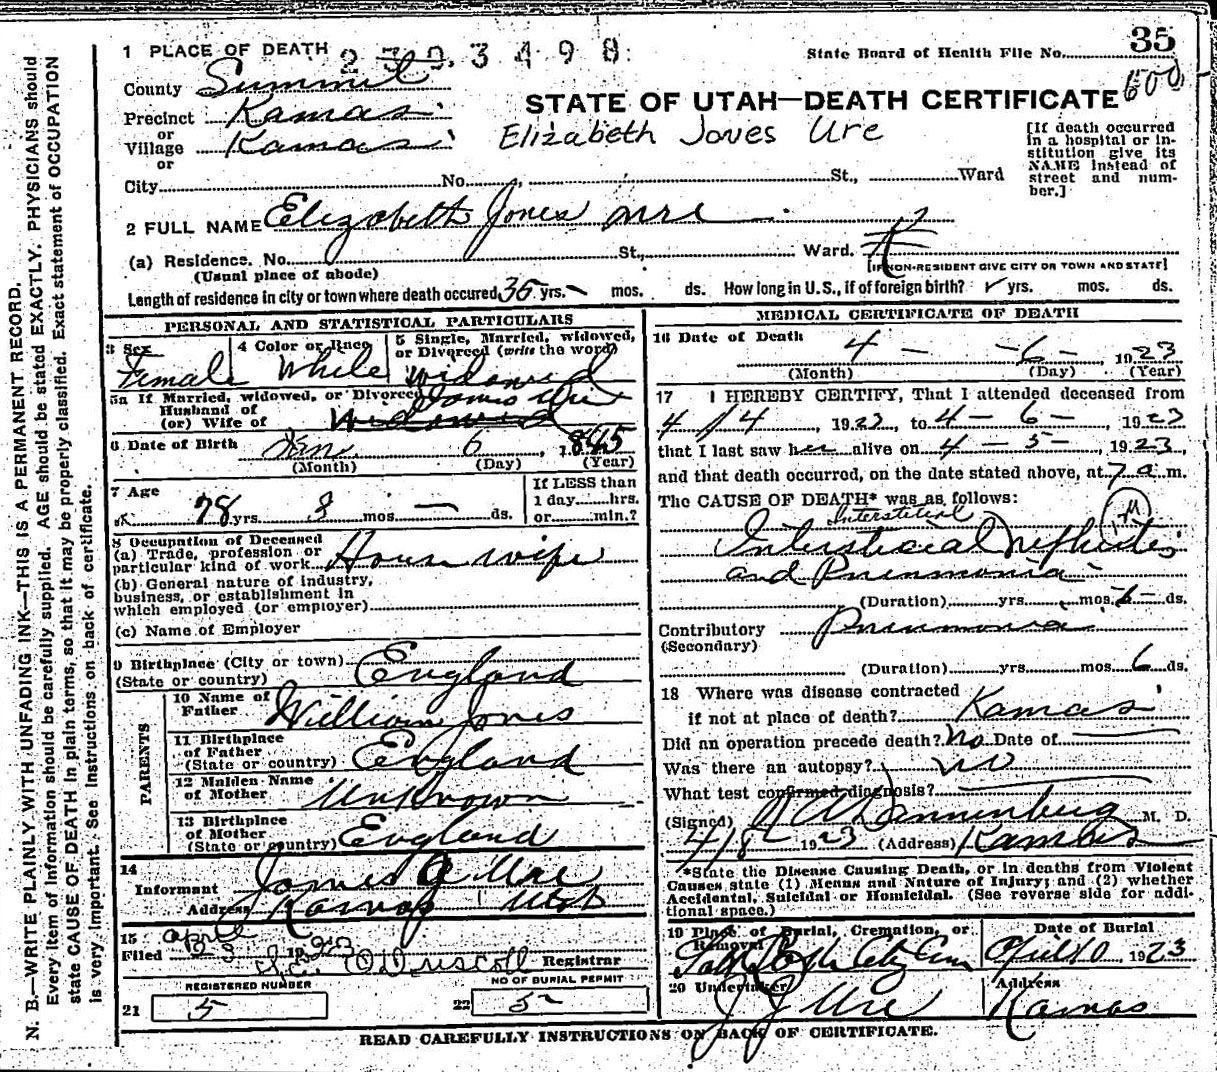 1 PLACE OF DEATH
State Board of Health File No. 35
County Summit
STATE OF UTAH—DEATH CERTIFICATE 600
Precinct Kamas
or
Village Kamas
Elizabeth Jones Ure
or
City No. St., Ward
[If death occurred
in a hospital or in-
stitution give its
NAME instead of
street and num-
ber.]
2 FULL NAME Elizabeth Jones Ure
(a) Residence. No. St., Ward.
(Usual place of abode)
[IF NON-RESIDENT GIVE CITY OR TOWN AND STATE]
Length of residence in city or town where death occured 35 yrs. — mos. ds. How long in U.S., if of foreign birth? yrs. mos. ds.
PERSONAL AND STATISTICAL PARTICULARS
3 Sex
Female
4 Color or Race
White
5 Single, Married, widowed,
or Divorced (write the word)
widowed
5a If Married, widowed, or Divorced James Ure
Husband of
(or) Wife of widowed
6 Date of Birth Jan 6, 1845
(Month) (Day) (Year)
7 Age
78 yrs. 3 mos. — ds.
If LESS than
1 day hrs.
or min.?
8 Occupation of Deceased
(a) Trade, profession or
particular kind of work House wife
(b) General nature of industry,
business, or establishment in
which employed (or employer)
(c) Name of Employer
9 Birthplace (City or town)
(State or country) England
PARENTS
10 Name of
Father William Jones
11 Birthplace
of Father
(State or country) England
12 Maiden Name
of Mother Unknown
13 Birthplace
of Mother
(State or country) England
14
Informant James A Ure
Address Kamas Utah
15
Filed April 1923
O'Driscoll Registrar
REGISTERED NUMBER
21 5
NO OF BURIAL PERMIT
22 5
MEDICAL CERTIFICATE OF DEATH
16 Date of Death
4 — 6 — , 1923
(Month) (Day) (Year)
17 I HEREBY CERTIFY, That I attended deceased from
4 / 4, 1923, to 4 — 6 —, 1923
that I last saw her alive on 4 — 5 —, 1923,
and that death occurred, on the date stated above, at 7 a m.
The CAUSE OF DEATH* was as follows:
Interstitial
Intersticial Nephritis
and Pneumonia
(Duration) yrs. mos. 6 ds.
Contributory Pneumonia
(Secondary)
(Duration) yrs mos 6 ds.
18 Where was disease contracted
if not at place of death? Kamas
Did an operation precede death? No Date of
Was there an autopsy? no
What test confirmed diagnosis?
(Signed) R A Dannenberg M. D.
4/8 1923 (Address) Kamas
*State the Disease Causing Death, or in deaths from Violent
Causes state (1) Means and Nature of Injury; and (2) whether
Accidental, Suicidal or Homicidal. (See reverse side for addi-
tional space.)
19 Place of Burial, Cremation, or
Removal
Salt Lake City Cem
Date of Burial
April 10 1923
20 Undertaker
J J Ure
Address
Kamas
READ CAREFULLY INSTRUCTIONS ON BACK OF CERTIFICATE.
N. B.—WRITE PLAINLY WITH UNFADING INK—THIS IS A PERMANENT RECORD.
Every item of information should be carefully supplied. AGE should be stated EXACTLY. PHYSICIANS should
state CAUSE OF DEATH in plain terms, so that it may be properly classified. Exact statement of OCCUPATION
is very important. See instructions on back of certificate.